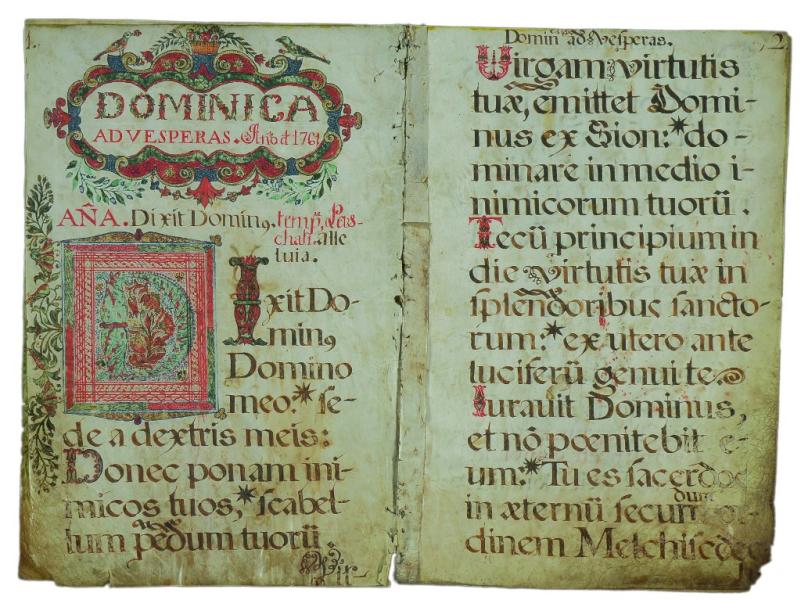 1.
DOMINICA
AD VESPERAS. Año đ 1761
AÑA. Dixit Domin9. temp. Pas-
chali. alle
luia.
DIxit Do-
min9
Domino
meo: * se-
de a dextris meis:
Donec ponam ini-
micos tuos, * scabel-
lum pedum tuorũ.
Domin ad Vesperas.
2
Virgam virtutis
tuæ, emittet Domi-
nus ex Sion: * do-
minare in medio i-
nimicorum tuorũ.
Tecũ principium in
die virtutis tuæ in
splendoribus sancto-
rum: * ex utero ante
luciferũ genui te.
Iurauit Dominus,
et nõ pœnitebit e-
um: * Tu es sacerdos
in æternũ secundum or-
dinem Melchisedec